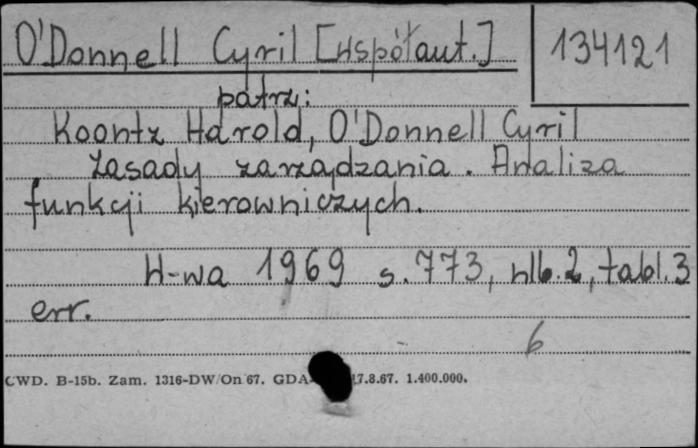 O'Donnell Cyril [współaut.]
134121
patrz:
Koontz Harold, O'Donnell Cyril
Zasady zarządzania. Analiza
funkcji kierowniczych.
W-wa 1969 s. 773, nlb. 2, tabl. 3
err.
6
CWD. B-15b. Zam. 1316-DW/On 67. GDA 17.8.67. 1.400.000.